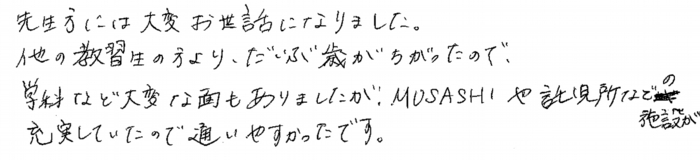 先生方には大変お世話になりました。
他の教習生の方より、だいぶ歳がちがったので、
学科など大変な面もありましたが、MUSASHIや託児所などの施設が
充実していたので通いやすかったです。